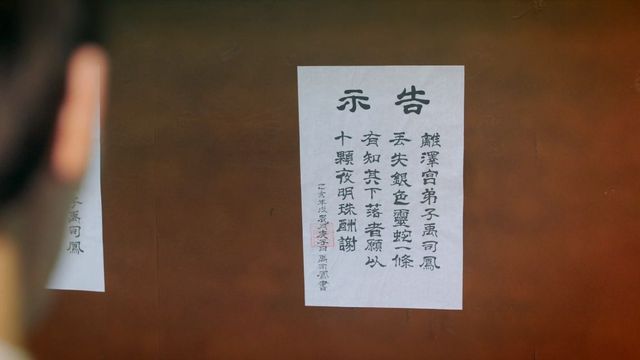 告示
離澤宮弟子禹司鳳
丟失銀色靈蛇一條
有知其下落者願以
十顆夜明珠酬謝
禹司鳳書
禹司鳳